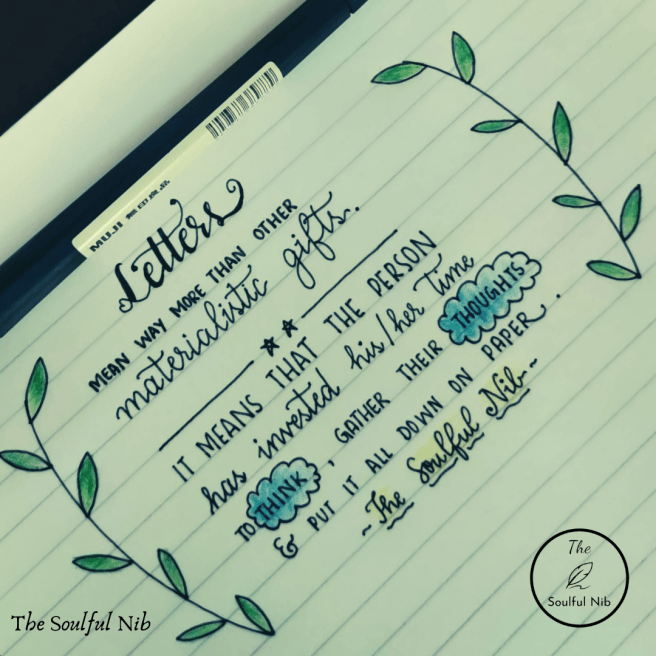 MUJI
Letters
MEAN WAY MORE THAN OTHER
materialistic gifts.
IT MEANS THAT THE PERSON
has invested his/her Time
TO THINK, GATHER THEIR THOUGHTS
& PUT IT ALL DOWN ON PAPER.
~The Soulful Nib~
The Soulful Nib
The
Soulful Nib